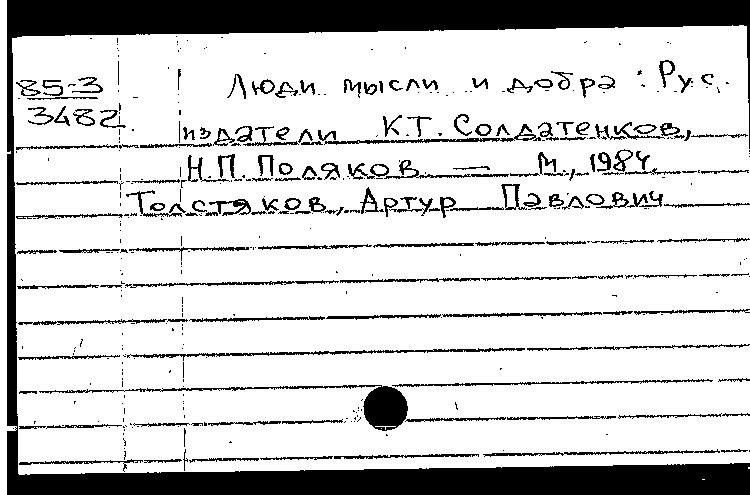 85-3 Люди мысли и добра : Рус.
3482
издатели К.Т. Солдатенков,
Н.П. Поляков. — М., 1984.
Толстяков, Артур Павлович